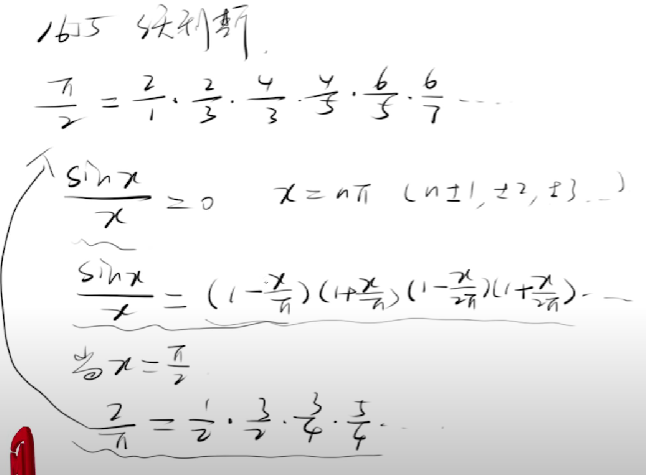 1655 沃利斯
π/2 = 2/1 · 2/3 · 4/3 · 4/5 · 6/5 · 6/7 ....
sinx/x = 0 x = nπ (n±1, ±2, ±3...)
sinx/x = (1-x/π)(1+x/π)(1-x/2π)(1+x/2π)....
当x=π/2
2/π = 1/2 · 3/2 · 3/4 · 5/4 ....